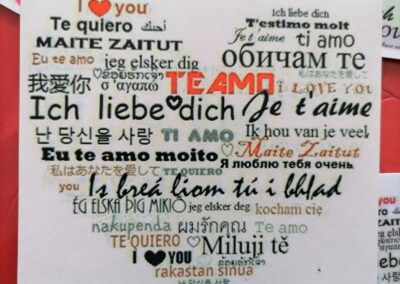 I ❤ you ich liebe dich
Te quiero أحبك T'estimo molt
MAITE ZAITUT Je t'aime ti amo
Eu te amo jeg elsker dig обичам те
我愛你 σ'αγαπώ TE AMO 私はあなたを愛して I LOVE YOU
Ich liebe dich Je t'aime
난 당신을 사랑 TI AMO Ik hou van je veel
Eu te amo moito Maite Zaitut
私はあなたを愛して TE QUIERO Я люблю тебя очень
you Is breá liom tú i bhfad
ÉG ELSKA ÞIG MIKIÐ jeg elsker dej kocham cię
nakupenda ผมรักคุณ Te amo
TE QUIERO Miluji tě
I ❤ YOU
rakastan sinua
난 당신을 사랑
you